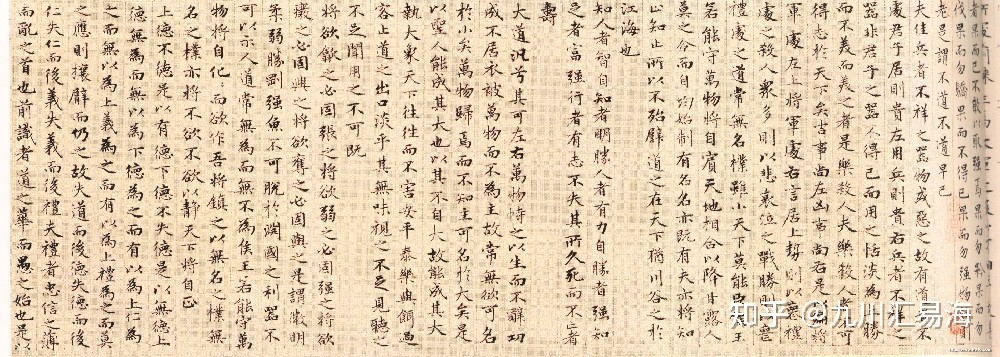 果而已不敢以取强焉果而勿矜果而勿
伐果而勿驕果而不得已果而勿强物
老是謂不道不道早已
夫佳兵者不祥之器物或惡之故有道不
處君子居則貴左用兵則貴右兵者不祥之
器非君子之器不得已而用之恬淡為上勝
而不美而美之者是樂殺人夫樂殺人者不可
得志於天下矣吉事尚左凶事尚右是以偏將
軍處左上將軍處右言居上勢則以喪禮
處之殺人衆多則以悲哀泣之戰勝則以喪
禮處之道常無名樸雖小天下莫能臣王
若能守萬物將自賓天地相合以降甘露人
莫之令而自均始制有名名亦既有夫亦將知
止知止所以不殆譬道之在天下猶川谷之於
江海也
知人者智自知者明勝人者有力自勝者强知
足者富强行者有志不失其所久死而不亡者
壽
大道汎兮其可左右萬物恃之以生而不辭功
成不居衣被萬物而不為主故常無欲可名
於小矣萬物歸焉而不知主可名於大矣是
以聖人能成其大也以其不自大故能成其大
執大象天下往往而不害安平泰樂與餌過
客止道之出口淡乎其無味視之不足見聽之
不足聞用之不可既
將欲歙之必固張之將欲弱之必固强之將欲
廢之必固興之將欲奪之必固與之是謂微明
柔弱勝剛强魚不可脫於淵國之利器不
可以示人道常無為而無不為侯王若能守萬
物將自化化而欲作吾將鎮之以無名之樸無
名之樸亦將不欲不欲以靜天下將自正
上德不德是以有德下德不失德是以無德上
德無為而無以為下德為之而有以為上仁為
之而無以為上義為之而有以為上禮為之而莫
之應則攘臂而仍之故失道而後德失德而後
仁失仁而後義失義而後禮夫禮者忠信之薄
而亂之首也前識者道之華而愚之始也是以
知乎 @九川汇易海